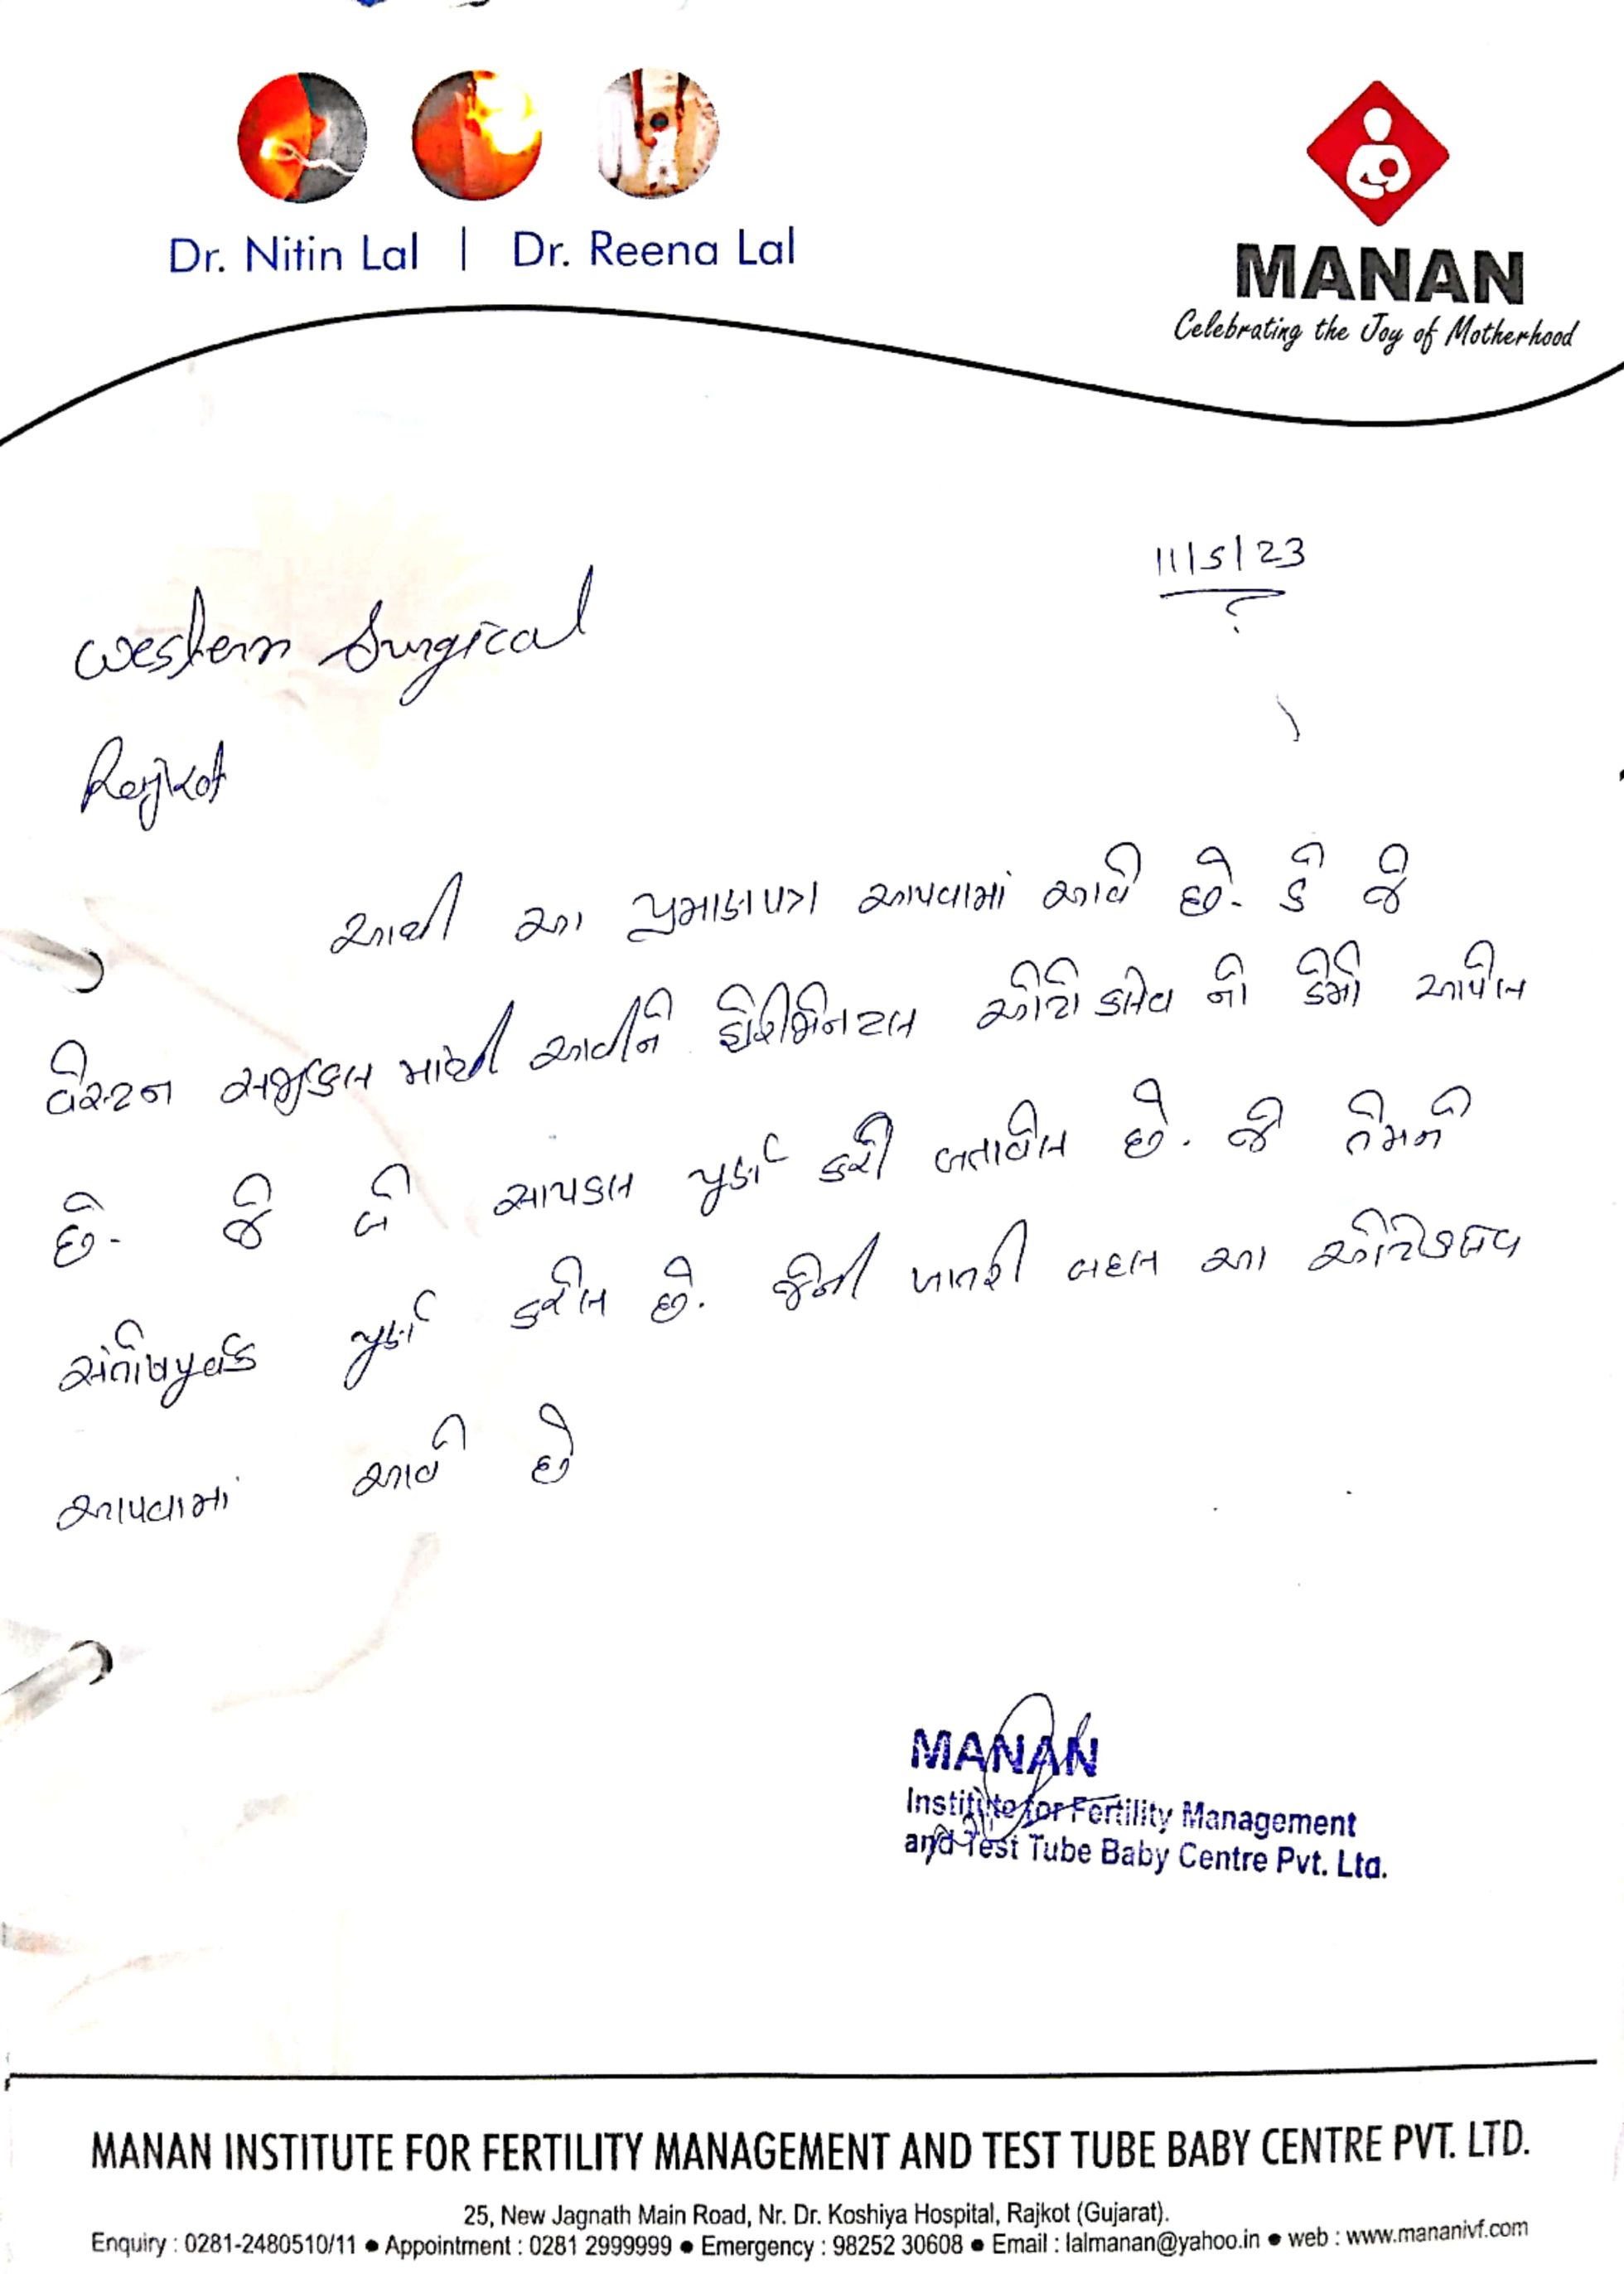 Dr. Nitin Lal | Dr. Reena Lal
MANAN
Celebrating the Joy of Motherhood
11/5/23
Western Surgical
Rajkot
આથી આ પ્રમાણપત્ર આપવામાં આવે છે. કે જે
વેસ્ટન સર્જીકલ માથી આવીને ઓટોકલેવ નો ડેમો આપેલ
છે. જે બે સાયકલ પુર્ણ કરી બતાવેલ છે. જે તેમને
સંતોષપુર્વક પુર્ણ કરેલ છે. જેની ખાતરી બદલ આ
આપવામાં આવે છે
MANAN
Institute for Fertility Management
and Test Tube Baby Centre Pvt. Ltd.
MANAN INSTITUTE FOR FERTILITY MANAGEMENT AND TEST TUBE BABY CENTRE PVT. LTD.
25, New Jagnath Main Road, Nr. Dr. Koshiya Hospital, Rajkot (Gujarat).
Enquiry : 0281-2480510/11 ● Appointment : 0281 2999999 ● Emergency : 98252 30608 ● Email : lalmanan@yahoo.in ● web : www.mananivf.com